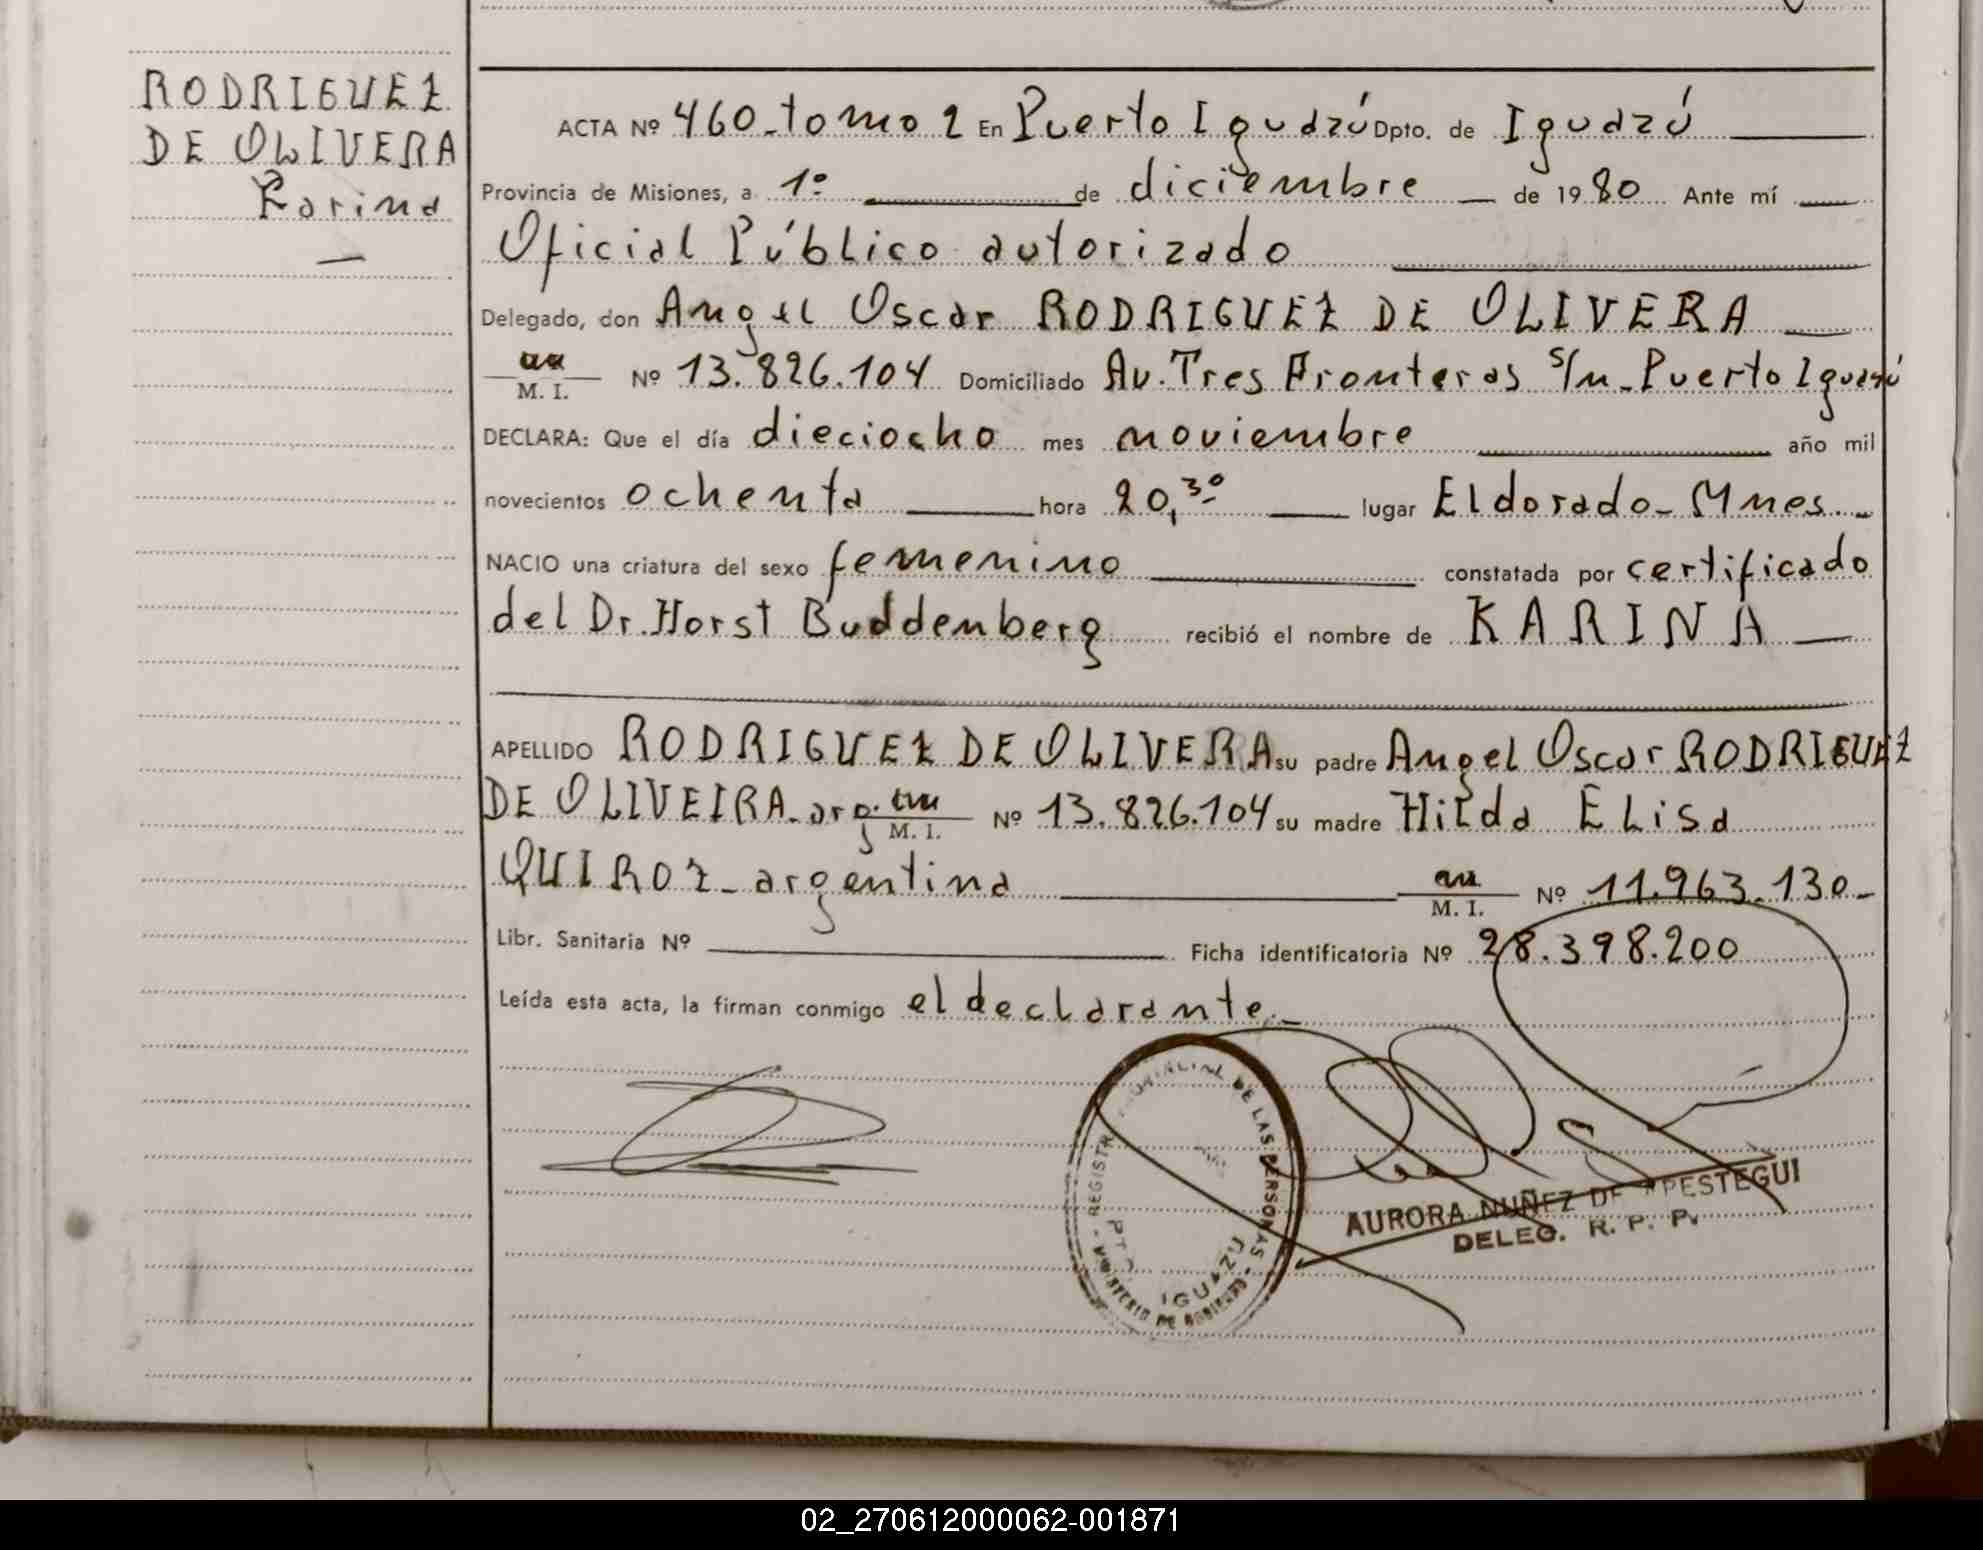 RODRIGUEZ
DE OLIVERA
Karina
ACTA Nº 460-tomo 2 En Puerto Iguazú Dpto. de Iguazú
Provincia de Misiones, a 1º de diciembre de 1980 Ante mí
Oficial Público autorizado
Delegado, don Angel Oscar RODRIGUEZ DE OLIVERA
M. I. Nº 13.826.104 Domiciliado Av. Tres Fronteras s/n-Puerto Iguazú
DECLARA: Que el día dieciocho mes noviembre año mil
novecientos ochenta hora 20,30 lugar Eldorado-Mnes.-
NACIO una criatura del sexo femenino constatada por certificado
del Dr. Horst Buddenberg recibió el nombre de KARINA
APELLIDO RODRIGUEZ DE OLIVERA su padre Angel Oscar RODRIGUEZ
DE OLIVEIRA-arg. M. I. Nº 13.826.104 su madre Hilda Elisa
QUIROZ-argentina M. I. Nº 11.963.130-
Libr. Sanitaria Nº Ficha identificatoria Nº 28.398.200
Leída esta acta, la firman conmigo el declarante.-
DE LAS PERSONAS
IGUAZU
AURORA NUÑEZ DE APESTEGUI
DELEG. R. P. P.
02_270612000062-001871